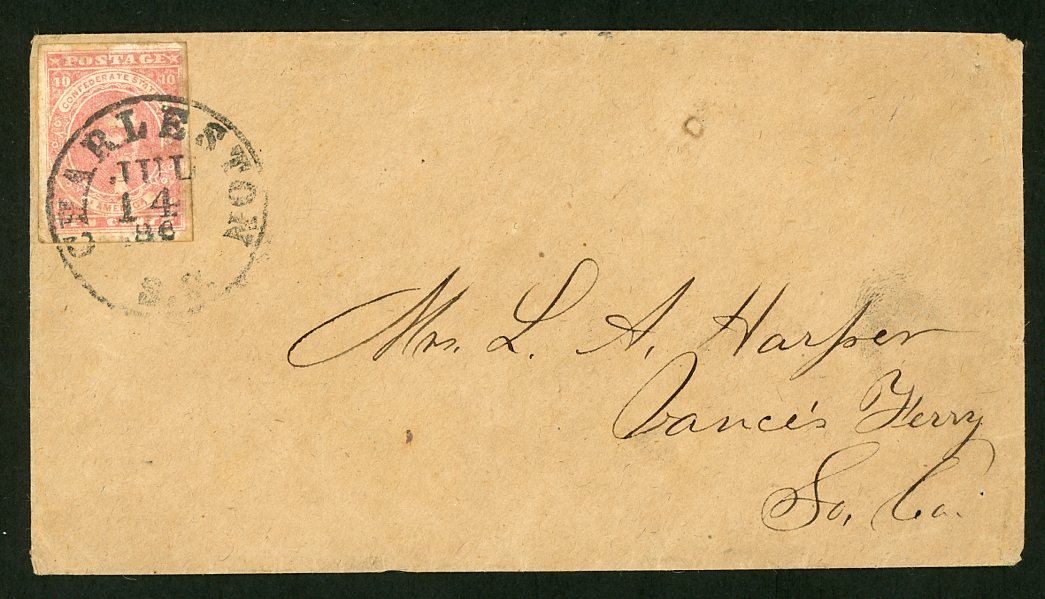 POSTAGE
10 10
CONFEDERATE STAT
AMERICA
CHARLESTON
JUL
14
S.C.
Mrs. L. A. Harper
Vance's Ferry
So. Ca.